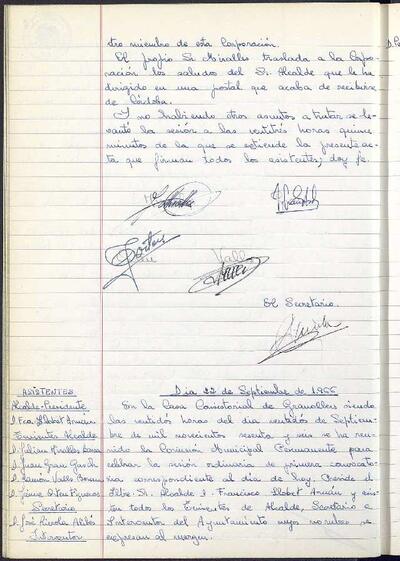 tro miembro de esta Corporación.
El propio Sr. Miralles traslada a la Corpo-
ración los saludos del Sr. Alcalde que le ha
dirigido en una postal que acaba de recibirse
de Córdoba.
Y no habiendo otros asuntos a tratar, se le-
vantó la sesión a las veintitrés horas quince
minutos de la que se extiende la presente ac-
ta que firman todos los asistentes; doy fe.
Valls
El Secretario.
ASISTENTES
Alcalde-Presidente
D. Fco. Llobet Arnán
Tenientes Alcalde
D. Julián Miralles
D. Juan Grau
D. Ramón Valls
D. Jaime
Secretario
D. José
Interventor
Dia 22 de Septiembre de 1966
En la Casa Consistorial de Granollers siendo
las veintidós horas del dia veintidós de Septiem-
bre de mil novecientos sesenta y seis se ha reu-
nido la Comisión Municipal Permanente para
celebrar la sesión ordinaria de primera convocato-
ria correspondiente al dia de hoy. Preside el
Iltre. Sr. Alcalde D. Francisco Llobet Arnán y asis-
ten todos los Tenientes de Alcalde, Secretario e
Interventor del Ayuntamiento cuyos nombres se
expresan al margen.